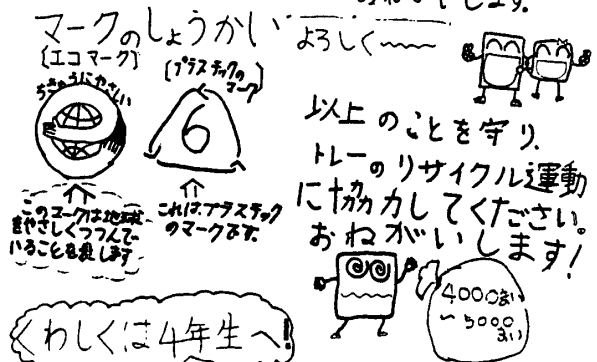 します。
マークのしょうかい
よろしく〜〜〜
[エコマーク]
[プラスチックのマーク]
ちきゅうにやさしい
6
このマークは地球
をやさしくつつんで
いることを表します
これはプラスチック
のマークです。
以上のことを守り、
トレーのリサイクル運動
に協力してください。
おねがいします!
4000まい
〜5000
まい
くわしくは4年生へ!